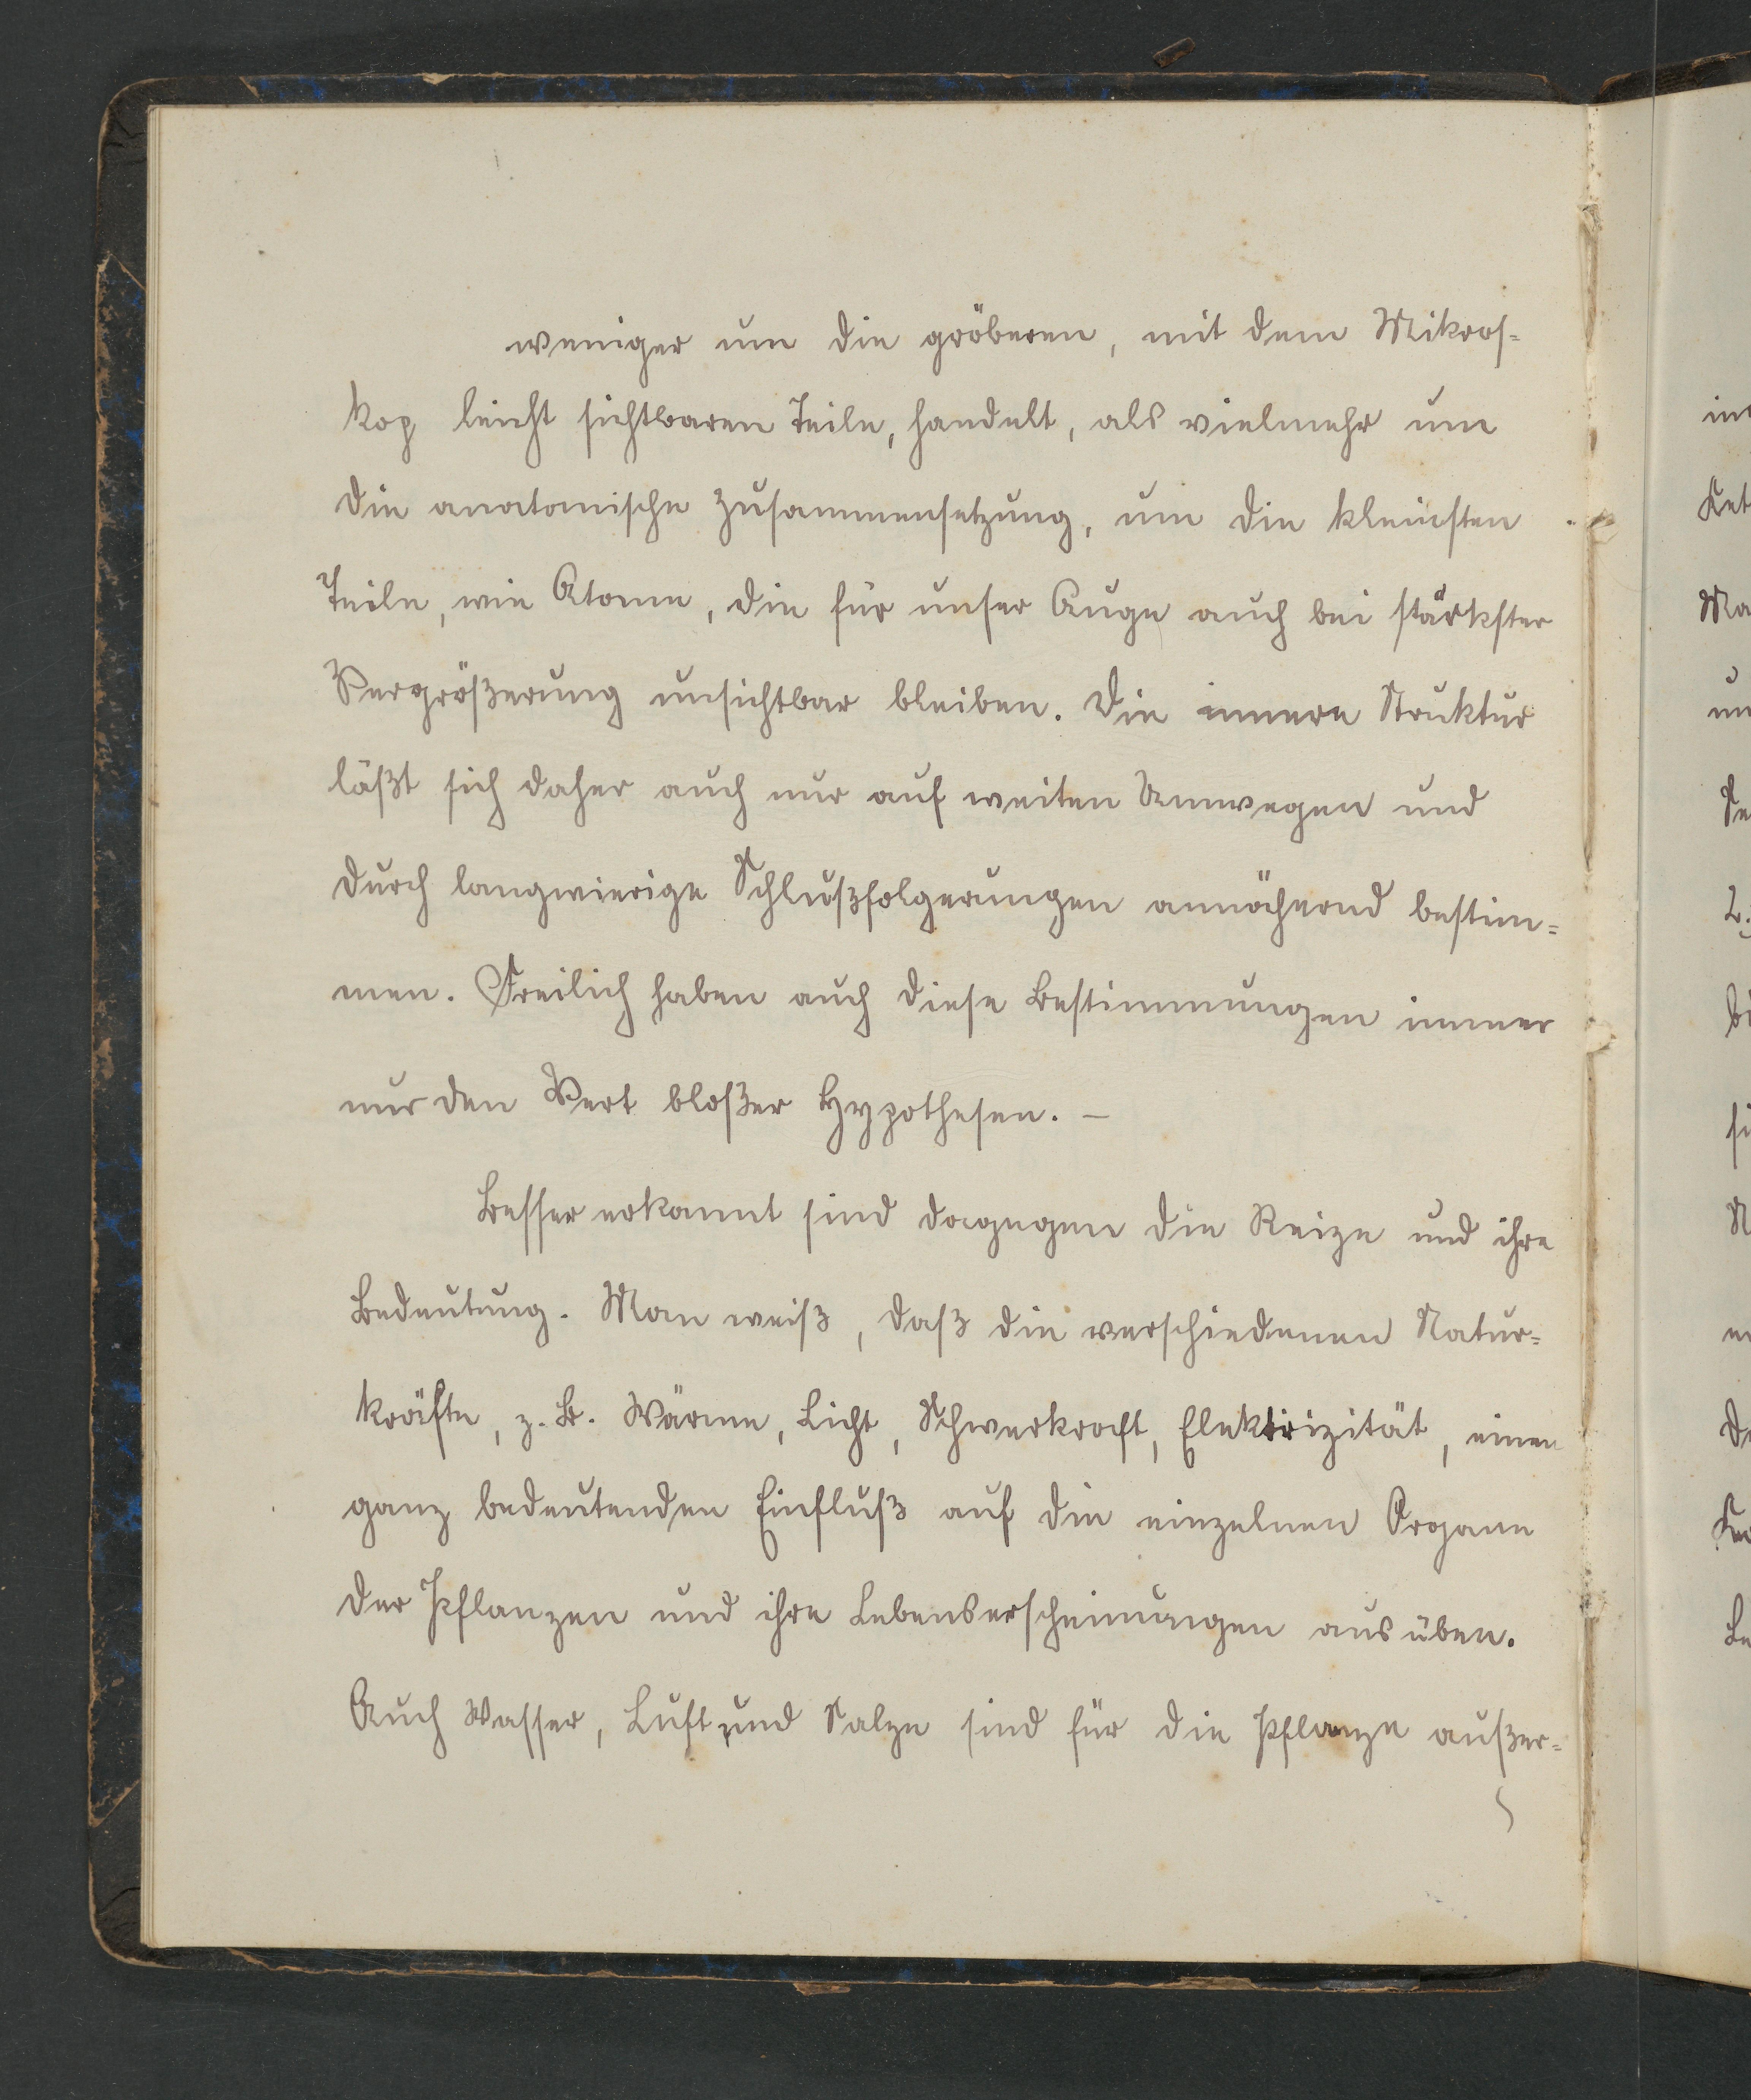 weniger um die gröberen, mit dem Mikros-
kop leicht sichtbaren Teile, handelt, als vielmehr um
die anatomische Zusammensetzung, um die kleinsten
Teile, wie Atome, die für unser Auge auch bei stärkster
Vergrößerung unsichtbar bleiben. Die innere Struktur
läßt sich daher auch nur auf weiten Umwegen und
durch langwierige Schlußfolgerungen annähernd bestim-
men. Freilich haben auch diese Bestimmungen immer
nur den Wert bloßer Hypothesen. –
Besser erkannt sind dagegen die Reize und ihre
Bedeutung. Man weiß, daß die verschiedenen Natur-
kräfte, z. B. Wärme, Licht, Schwerkraft, Elektrizität, einen
ganz bedeutenden Einfluß auf die einzelnen Organe
der Pflanzen und ihre Lebenserscheinungen ausüben.
Auch Wasser, Luft und Salze sind für die Pflanze außer-